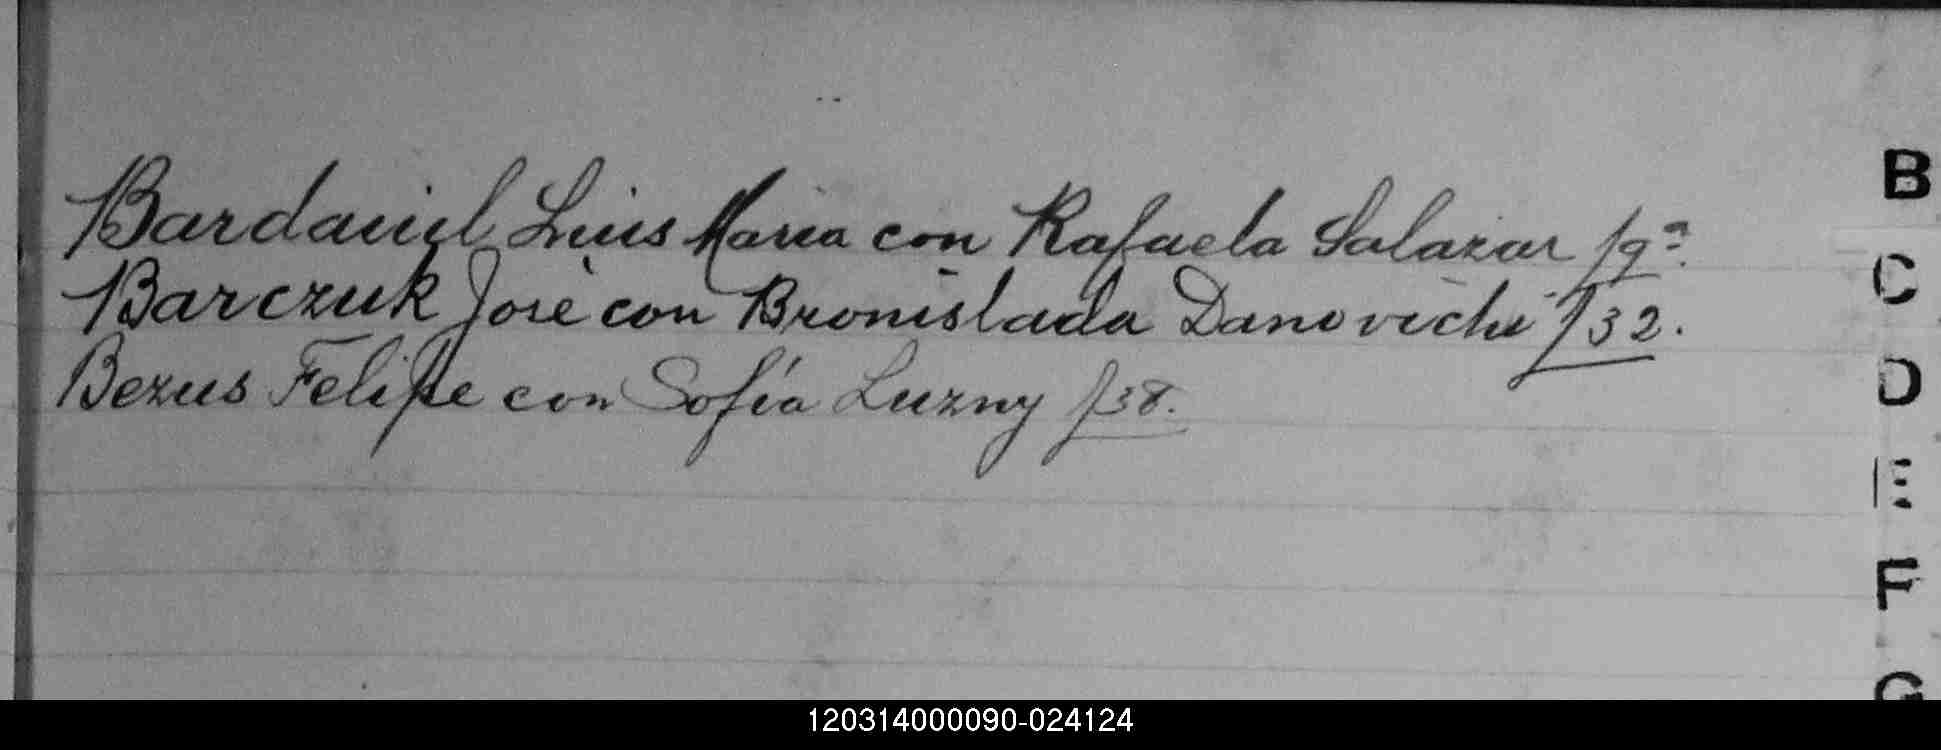 Bardauil Luis Maria con Rafaela Salazar f 9ª.
Barczuk José con Bronislada Danovichi f 32.
Bezus Felipe con Sofía Luzny f 38.
B
C
D
E
F
G
120314000090-024124